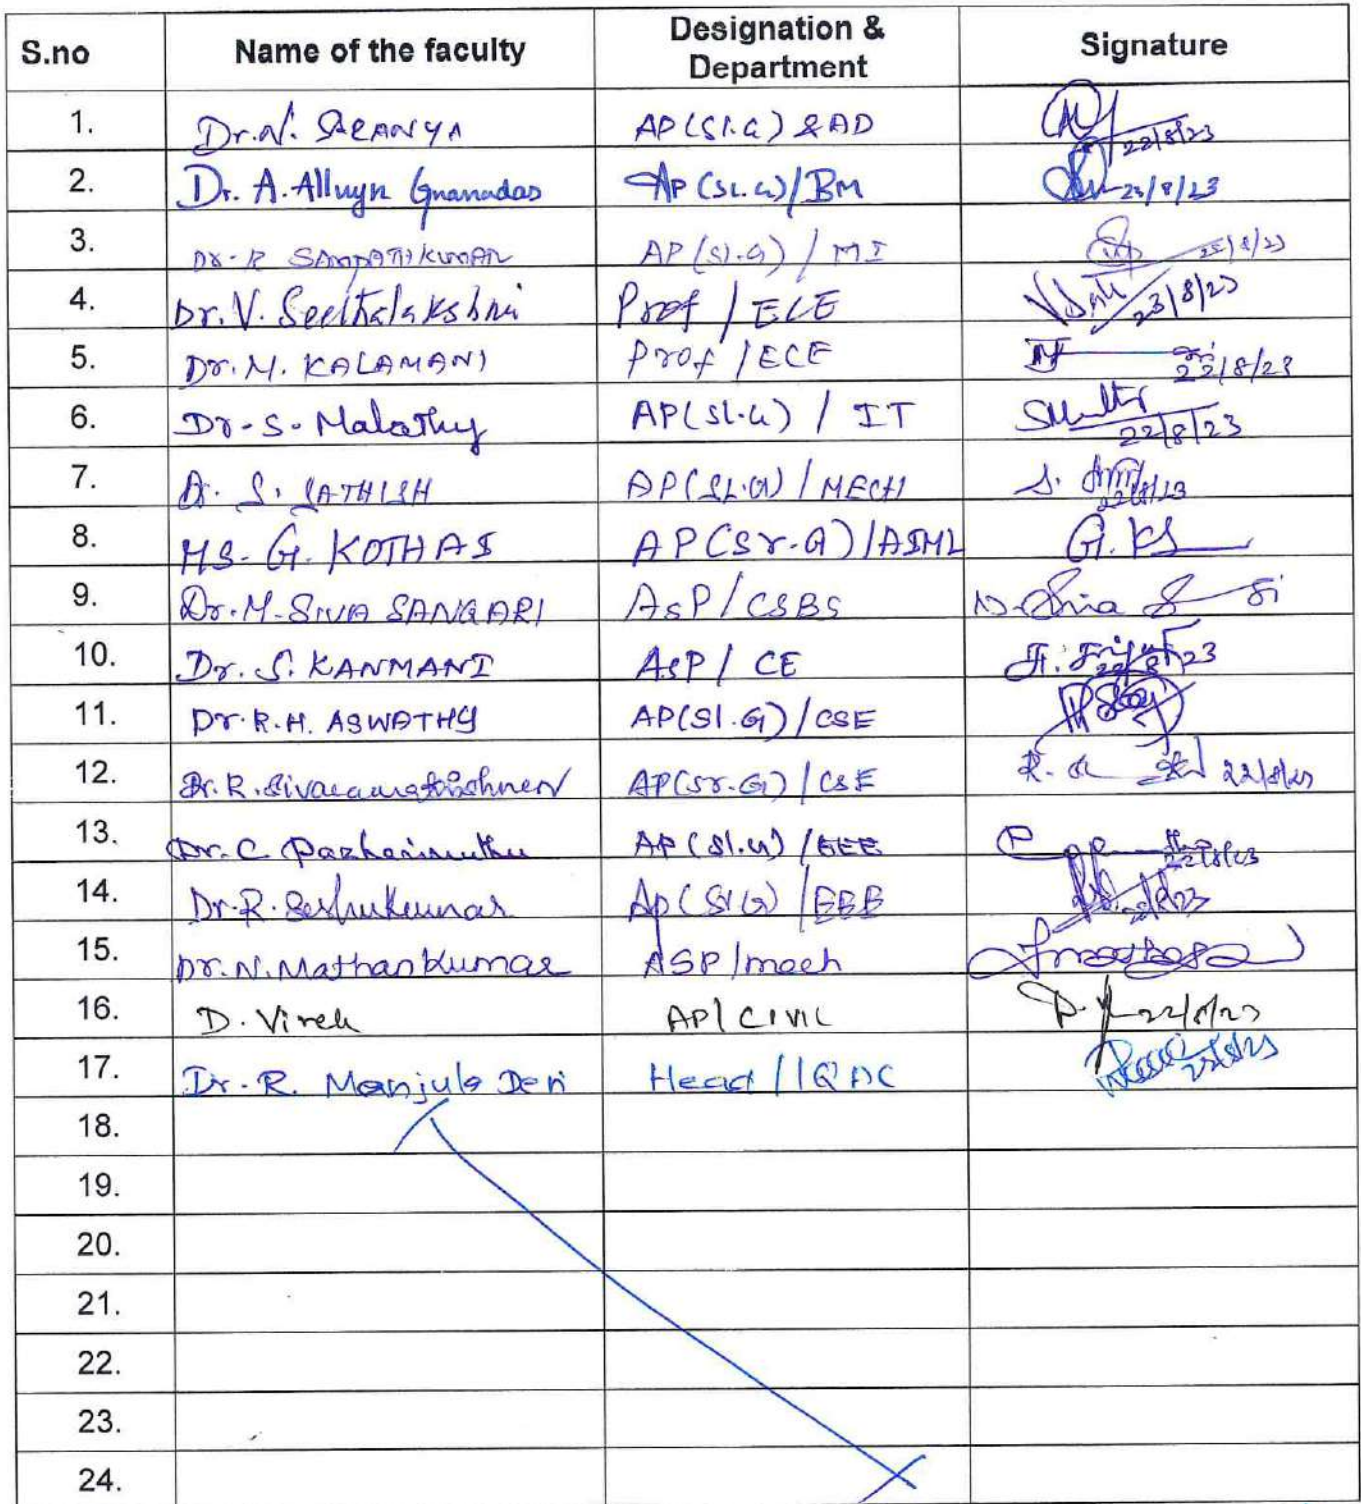 S.no Name of the faculty Designation & Department Signature
1. Dr.N. SARANYA AP(Sl.G) & AD 22/8/23
2. Dr. A. Allwyn Gnanadas AP(SL.G)/BM /8/23
3. Dr. R SAMPATHKUMAR AP(Sl.G) / MI
4. Dr. V. Seethalakshmi Prof / ECE 23/8/23
5. Dr. M. KALAMANI Prof / ECE 22/8/23
6. Dr. S. Malathy AP(Sl.G) / IT 22/8/23
7. Dr. S. SATHISH AP(SL.G) / MECH S.
8. MS. G. KOTHAI AP(Sr.G)/AIML G. KS
9. Dr. M. SIVA SANGARI AsP/CSBS
10. Dr. S. KANMANI AsP/ CE 22/8/23
11. Dr. R.H. ASWATHY AP(Sl.G)/CSE
12. Dr. R. Sivaramakrishnan AP(Sr.G) / CSE 22/8/23
13. Dr. C Pazhanimuthu AP(Sl.G) /EEE 22/8/23
14. Dr. R. Seshukumar AP(Sl.G) /EEE
15. Dr. N. Mathankumar ASP/mech
16. D. Vivek AP/ CIVIL 22/8/23
17. Dr. R. Manjula Devi Head / IQAC
18.
19.
20.
21.
22.
23.
24.